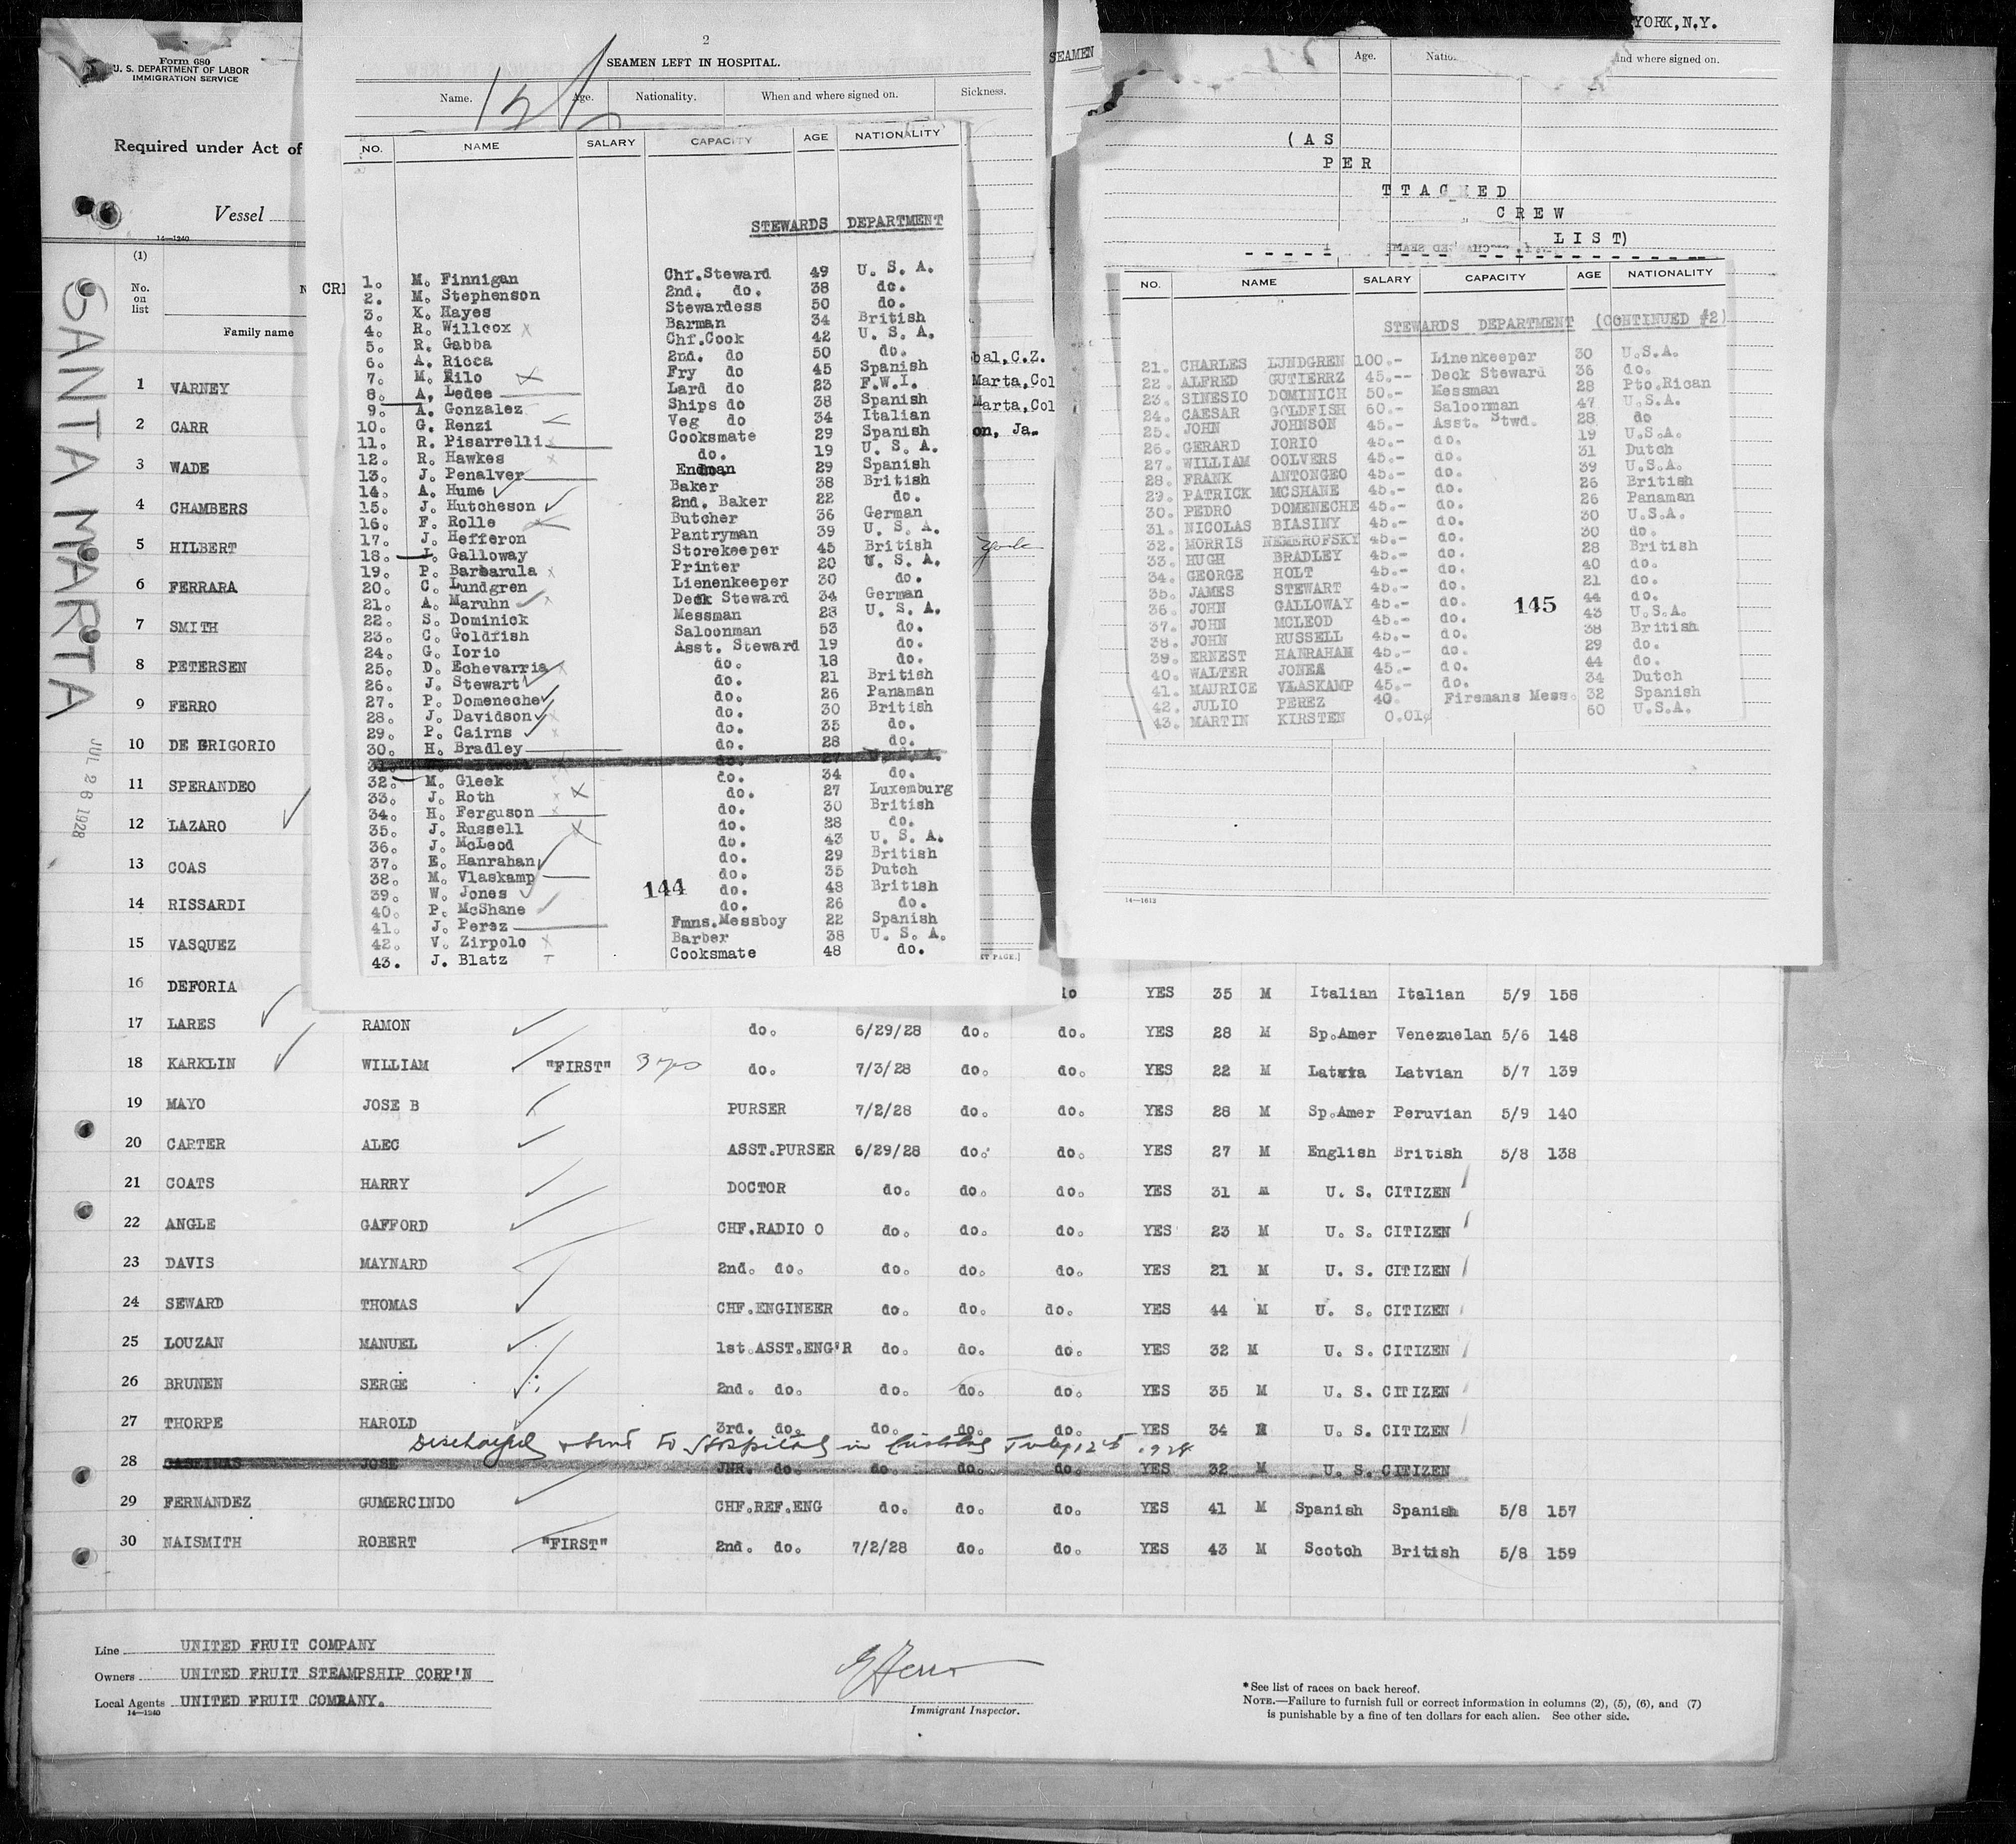 Form 680
U. S. DEPARTMENT OF LABOR
IMMIGRATION SERVICE
Required under Act of
Vessel
14—1240
(1)
No.
on
list
Family name
SANTA MARTA
JUL 26 1928
1 VARNEY
2 CARR
3 WADE
4 CHAMBERS
5 HILBERT
6 FERRARA
7 SMITH
8 PETERSEN
9 FERRO
10 DE GRIGORIO
11 SPERANDEO
12 LAZARO
13 COAS
14 RISSARDI
15 VASQUEZ
2
SEAMEN LEFT IN HOSPITAL.
Name. Age. Nationality. When and where signed on. Sickness.
NO. NAME SALARY CAPACITY AGE NATIONALITY
STEWARDS DEPARTMENT
1. M. Finnigan Chf.Steward 49 U. S. A.
2. M. Stephenson 2nd. do. 38 do.
3. K. Hayes Stewardess 50 do.
4. R. Willcox Barman 34 British
5. R. Gabba Chf.Cook 42 U. S. A.
6. A. Ricca 2nd. do 50 do.
7. M. Filo Fry do 45 Spanish
8. A. Ledee Lard do 23 F.W.I.
9. A. Gonzalez Ships do 38 Spanish
10. G. Renzi Veg do 34 Italian
11. R. Pisarrelli Cooksmate 29 Spanish
12. R. Hawkes do. 19 U. S. A.
13. J. Penalver Endman 29 Spanish
14. A. Hume Baker 38 British
15. J. Hutcheson 2nd. Baker 22 do.
16. F. Rolle Butcher 36 German
17. J. Hefferon Pantryman 39 U. S. A.
18. J. Galloway Storekeeper 45 British
19. P. Barbarula Printer 20 U. S. A.
20. C. Lundgren Lienenkeeper 30 do.
21. A. Maruhn Deck Steward 34 German
22. S. Dominick Messman 28 U. S. A.
23. C. Goldfish Saloonman 53 do.
24. G. Iorio Asst. Steward 19 do.
25. D. Echevarria do. 18 do.
26. J. Stewart do. 21 British
27. P. Domeneche do. 26 Panaman
28. J. Davidson do. 30 British
29. P. Cairns do. 35 do.
30. H. Bradley do. 28 do.
31. do. 27 U. S. A.
32. M. Gleek do. 34 do.
33. J. Roth do. 27 Luxemburg
34. H. Ferguson do. 30 British
35. J. Russell do. 28 do.
36. J. McLeod do. 43 U. S. A.
37. E. Hanrahan do. 29 British
38. M. Vlaskamp do. 35 Dutch
39. W. Jones do. 48 British
40. P. McShane do. 26 do.
41. J. Perez Fmns.Messboy 22 Spanish
42. V. Zirpolo Barber 38 U. S. A.
43. J. Blatz Cooksmate 48 do.
144
CRE
bal,C.Z.
Marta,Col
Marta,Col
on, Ja.
York
ST PAGE.]
SEAMEN
YORK,N.Y.
Age. Natio. and where signed on.
(AS
PER
TTACHED
CREW
LIST)
NO. NAME SALARY CAPACITY AGE NATIONALITY
STEWARDS DEPARTMENT (CONTINUED #2)
21. CHARLES LUNDGREN 100.- Linenkeeper 30 U.S.A.
22. ALFRED GUTIERRZ 45.-- Deck Steward 36 do.
23. SINESIO DOMINICH 50.- Messman 28 Pto.Rican
24. CAESAR GOLDFISH 60.- Saloonman 47 U.S.A.
25. JOHN JOHNSON 45.- Asst. Stwd. 28 do
26. GERARD IORIO 45.- do. 19 U.S.A.
27. WILLIAM OOLVERS 45.- do. 31 Dutch
28. FRANK ANTONGEO 45.- do. 39 U.S.A.
29. PATRICK MCSHANE 45.- do. 26 British
30. PEDRO DOMENECHE 45.- do. 26 Panaman
31. NICOLAS BIASINY 45.- do. 30 U.S.A.
32. MORRIS NEMEROFSKY 45.- do. 30 do.
33. HUGH BRADLEY 45.- do. 28 British
34. GEORGE HOLT 45.- do. 40 do.
35. JAMES STEWART 45.- do. 21 do.
36. JOHN GALLOWAY 45.- do. 44 do.
37. JOHN MCLEOD 45.- do. 43 U.S.A.
38. JOHN RUSSELL 45.- do. 38 British
39. ERNEST HANRAHAN 45.- do. 29 do.
40. WALTER JONES 45.- do. 44 do.
41. MAURICE VLASKAMP 45.- do. 34 Dutch
42. JULIO PEREZ 40. Firemans Mess. 32 Spanish
43. MARTIN KIRSTEN 0.01¢ 60 U.S.A.
145
14—1612
16 DEFORIA do YES 35 M Italian Italian 5/9 158
17 LARES RAMON do. 6/29/28 do. do. YES 28 M Sp.Amer Venezuelan 5/6 148
18 KARKLIN WILLIAM "FIRST" 3 yrs do. 7/3/28 do. do. YES 22 M Latvia Latvian 5/7 139
19 MAYO JOSE B PURSER 7/2/28 do. do. YES 28 M Sp.Amer Peruvian 5/9 140
20 CARTER ALEC ASST.PURSER 6/29/28 do. do. YES 27 M English British 5/8 138
21 COATS HARRY DOCTOR do. do. do. YES 31 M U. S. CITIZEN
22 ANGLE GAFFORD CHF.RADIO O do. do. do. YES 23 M U. S. CITIZEN
23 DAVIS MAYNARD 2nd. do. do. do. do. YES 21 M U. S. CITIZEN
24 SEWARD THOMAS CHF.ENGINEER do. do. do. YES 44 M U. S. CITIZEN
25 LOUZAN MANUEL 1st.ASST.ENG'R do. do. do. YES 32 M U. S. CITIZEN
26 BRUNEN SERGE 2nd. do. do. do. do. YES 35 M U. S. CITIZEN
27 THORPE HAROLD 3rd. do. do. do. do. YES 34 M U. S. CITIZEN
Discharged & sent to Hospital in Cristobal July 12th 1928
28 CASEIRAS JOSE JNR. do. do. do. do. YES 32 M U. S. CITIZEN
29 FERNANDEZ GUMERCINDO CHF.REF.ENG do. do. do. YES 41 M Spanish Spanish 5/8 157
30 NAISMITH ROBERT "FIRST" 2nd. do. 7/2/28 do. do. YES 43 M Scotch British 5/8 159
Line UNITED FRUIT COMPANY
Owners UNITED FRUIT STEAMPSHIP CORP'N
Local Agents UNITED FRUIT COMPANY.
14—1240
Immigrant Inspector.
* See list of races on back hereof.
NOTE.—Failure to furnish full or correct information in columns (2), (5), (6), and (7)
is punishable by a fine of ten dollars for each alien. See other side.